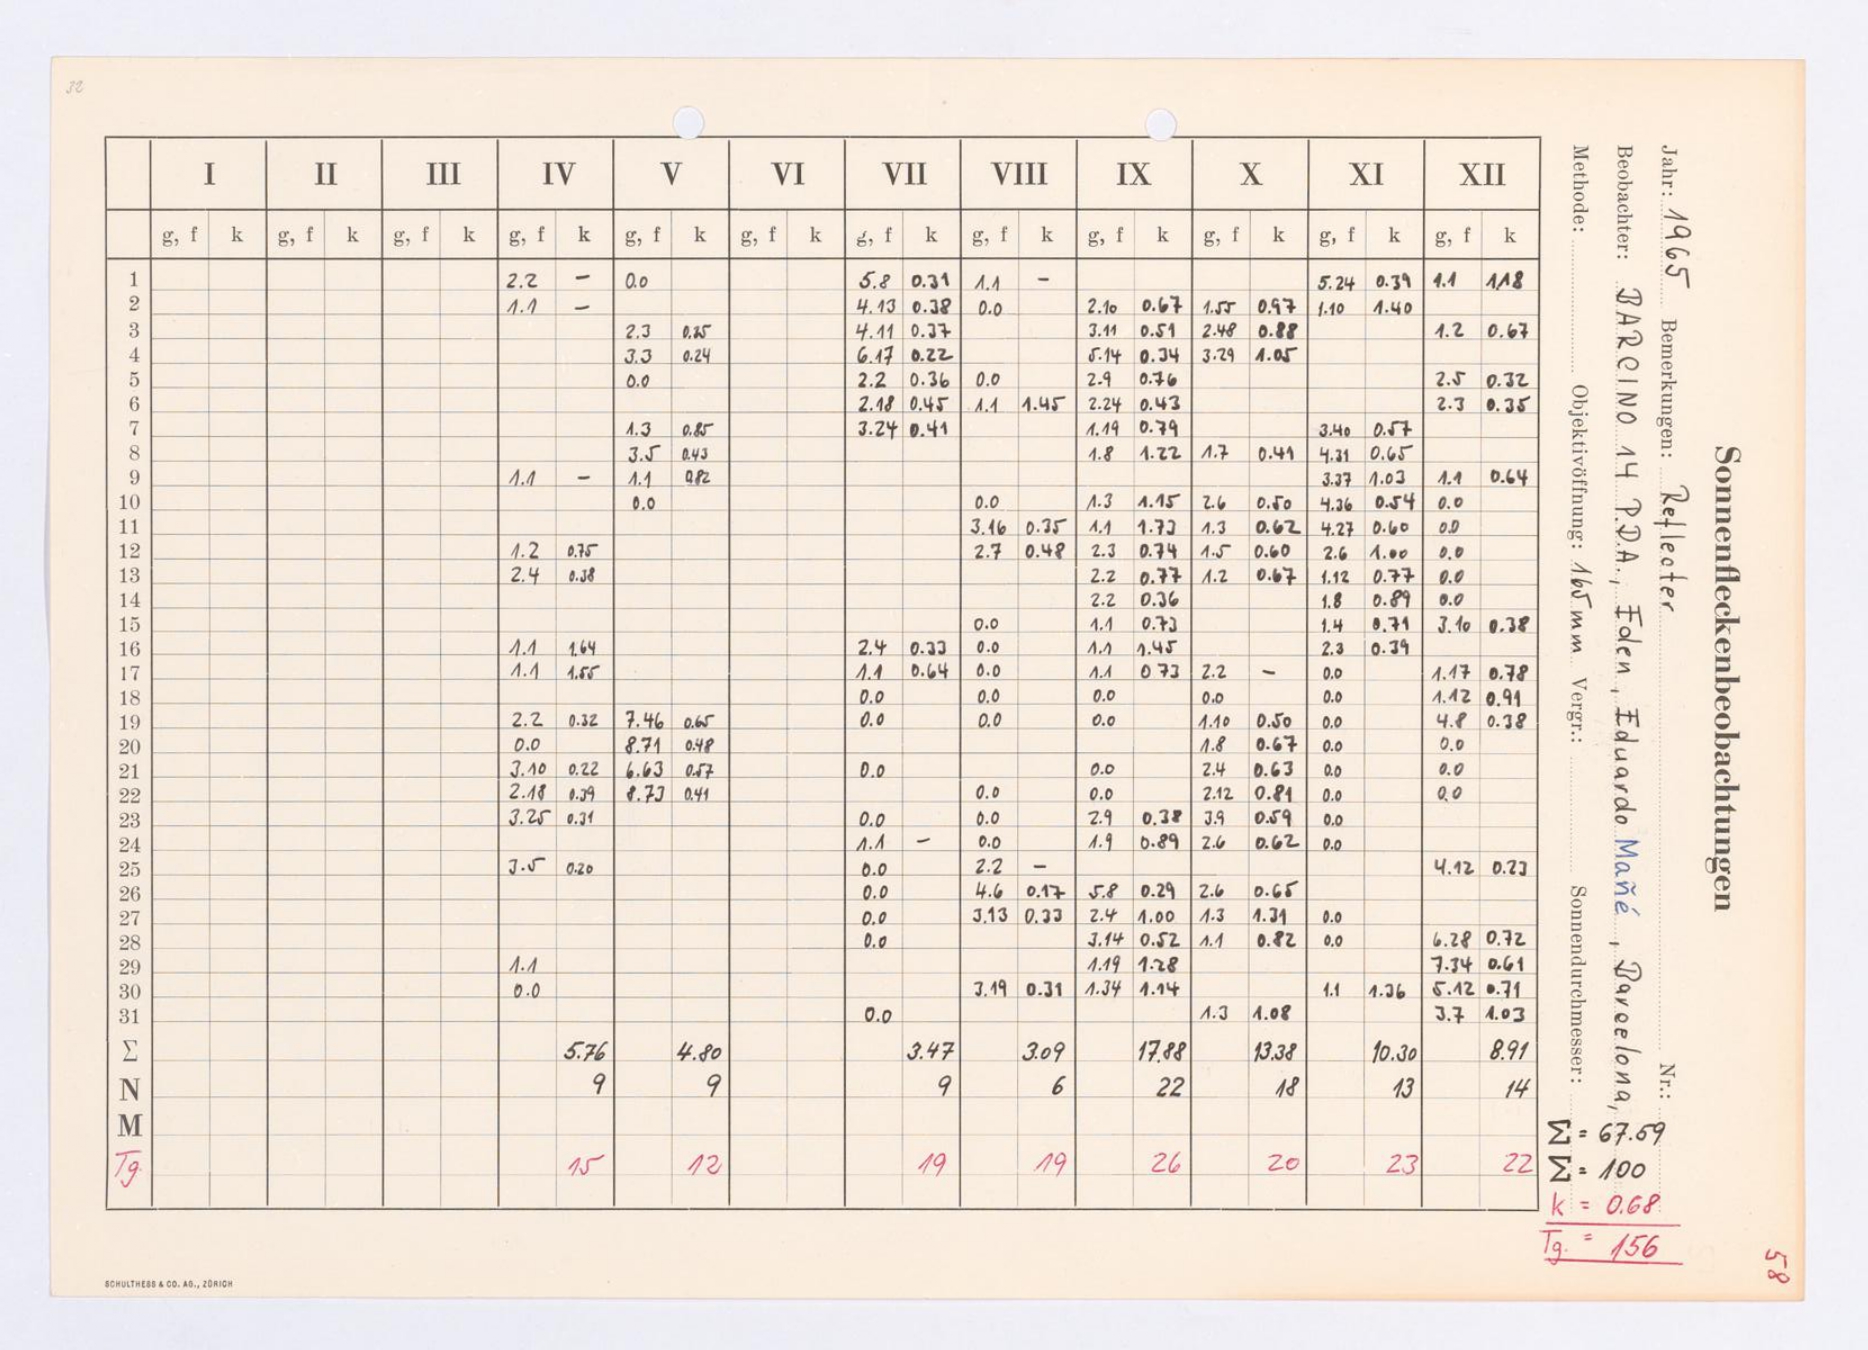 32
Sonnenfleckenbeobachtungen
Jahr: 1965 Bemerkungen: Reflector Nr.:
Beobachter: BARCINO 14 P.D.A., Eden, Eduardo Mañé, Barcelona,
Methode: Objektivöffnung: 165 mm Vergr.: Sonnendurchmesser:
I II III IV V VI VII VIII IX X XI XII
g, f k g, f k g, f k g, f k g, f k g, f k g, f k g, f k g, f k g, f k g, f k g, f k
1 2.2 – 0.0 5.8 0.31 1.1 – 5.24 0.39 1.1 1.18
2 1.1 – 4.13 0.38 0.0 2.10 0.67 1.55 0.97 1.10 1.40
3 2.3 0.25 4.11 0.37 3.11 0.51 2.48 0.88 1.2 0.67
4 3.3 0.24 6.17 0.22 5.14 0.34 3.29 1.05
5 0.0 2.2 0.36 0.0 2.9 0.76 2.5 0.32
6 2.18 0.45 1.1 1.45 2.24 0.43 2.3 0.35
7 1.3 0.85 3.24 0.41 1.19 0.79 3.40 0.57
8 3.5 0.43 1.8 1.22 1.7 0.41 4.31 0.65
9 1.1 – 1.1 0.82 3.37 1.03 1.1 0.64
10 0.0 0.0 1.3 1.15 2.6 0.50 4.36 0.54 0.0
11 3.16 0.35 1.1 1.73 1.3 0.62 4.27 0.60 0.0
12 1.2 0.75 2.7 0.48 2.3 0.74 1.5 0.60 2.6 1.00 0.0
13 2.4 0.38 2.2 0.77 1.2 0.67 1.12 0.77 0.0
14 2.2 0.36 1.8 0.89 0.0
15 0.0 1.1 0.73 1.4 0.71 3.10 0.38
16 1.1 1.64 2.4 0.33 0.0 1.1 1.45 2.3 0.39
17 1.1 1.55 1.1 0.64 0.0 1.1 0.73 2.2 – 0.0 1.17 0.78
18 0.0 0.0 0.0 0.0 0.0 1.12 0.91
19 2.2 0.32 7.46 0.65 0.0 0.0 0.0 1.10 0.50 0.0 4.8 0.38
20 0.0 8.71 0.48 1.8 0.67 0.0 0.0
21 3.10 0.22 6.63 0.57 0.0 0.0 2.4 0.63 0.0 0.0
22 2.18 0.39 8.73 0.41 0.0 0.0 2.12 0.81 0.0 0.0
23 3.25 0.31 0.0 0.0 2.9 0.38 3.9 0.59 0.0
24 1.1 – 0.0 1.9 0.89 2.6 0.62 0.0
25 3.5 0.20 0.0 2.2 – 4.12 0.23
26 0.0 4.6 0.17 5.8 0.29 2.6 0.65
27 0.0 3.13 0.33 2.4 1.00 1.3 1.31 0.0
28 0.0 3.14 0.52 1.1 0.82 0.0 6.28 0.72
29 1.1 1.19 1.28 7.34 0.61
30 0.0 3.19 0.31 1.34 1.14 1.1 1.36 5.12 0.71
31 0.0 1.3 1.08 3.7 1.03
Σ 5.76 4.80 3.47 3.09 17.88 13.38 10.30 8.91
N 9 9 9 6 22 18 13 14
M
Tg. 15 12 19 19 26 20 23 22
Σ = 67.59
Σ = 100
k = 0.68
Tg. = 156
58
SCHULTHESS & CO. AG., ZÜRICH